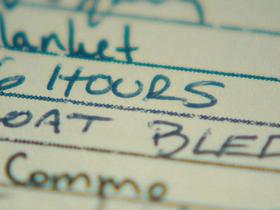 lanket
6 HOURS
OAT BLED
Commo